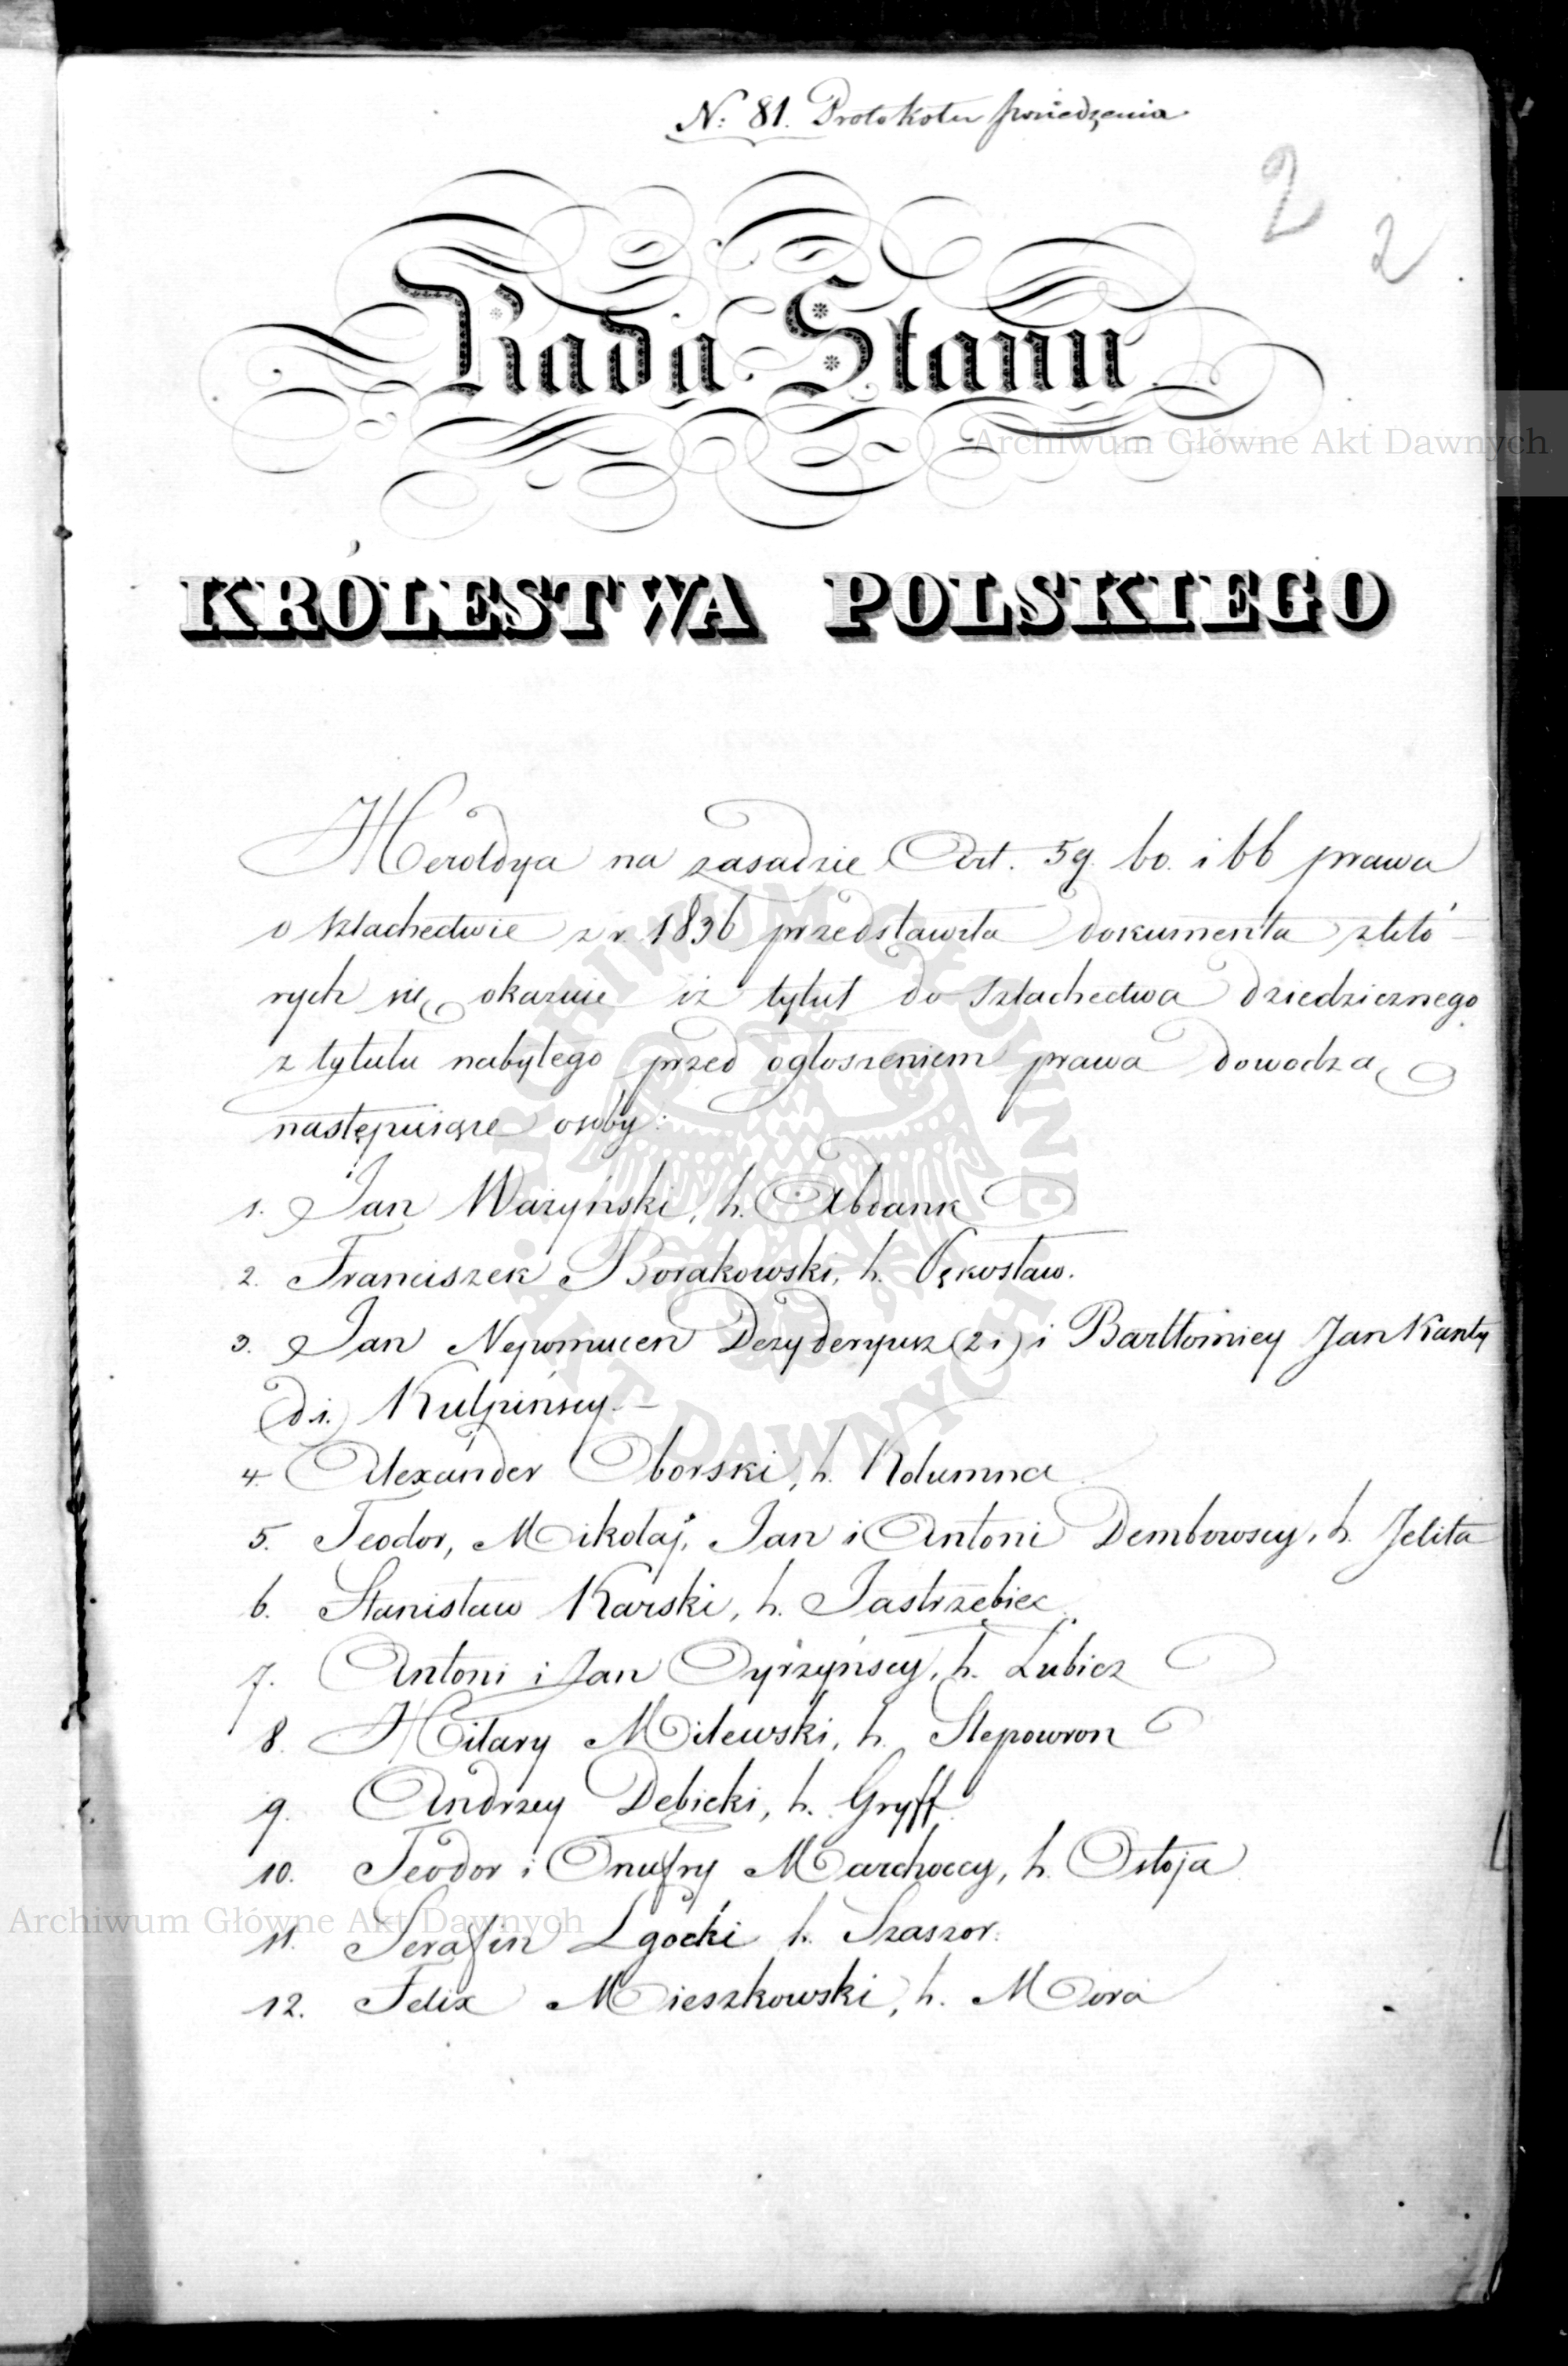 N: 81. Protokołu posiedzenia
2
2
Rada Stanu
KRÓLESTWA POLSKIEGO
Archiwum Główne Akt Dawnych
Heroldya na zasadzie Art. 59. 60. i 66 prawa
o szlachectwie z r. 1836 przedstawiła dokumenta z któ-
rych się okazuie iż tytuł do szlachectwa dziedzicznego
z tytułu nabytego przed ogłoszeniem prawa dowodzą
następuiące osoby:
1. Jan Ważyński, h. Abdank
2. Franciszek Borakowski, h. Pękosław.
3. Jan Nepomucen Dezyderyusz (2 i) i Bartłomiey Jan Kanty
(d i.) Kulpińscy.—
4. Alexander Oborski, h. Kolumna
5. Teodor, Mikołaj, Jan i Antoni Dembowscy, h. Jelita
6. Stanisław Karski, h. Jastrzębiec
7. Antoni i Jan Oyrzyńscy, h. Lubicz
8. Hilary Milewski, h. Slepowron
9. Andrzey Dębicki, h. Gryff.
10. Teodor i Onufry Marchoccy, h. Ostoja
11. Serafin Lgocki h. Szaszor.
12. Felix Mieszkowski, h. Mora
Archiwum Główne Akt Dawnych
ARCHIWUM GŁÓWNE AKT DAWNYCH